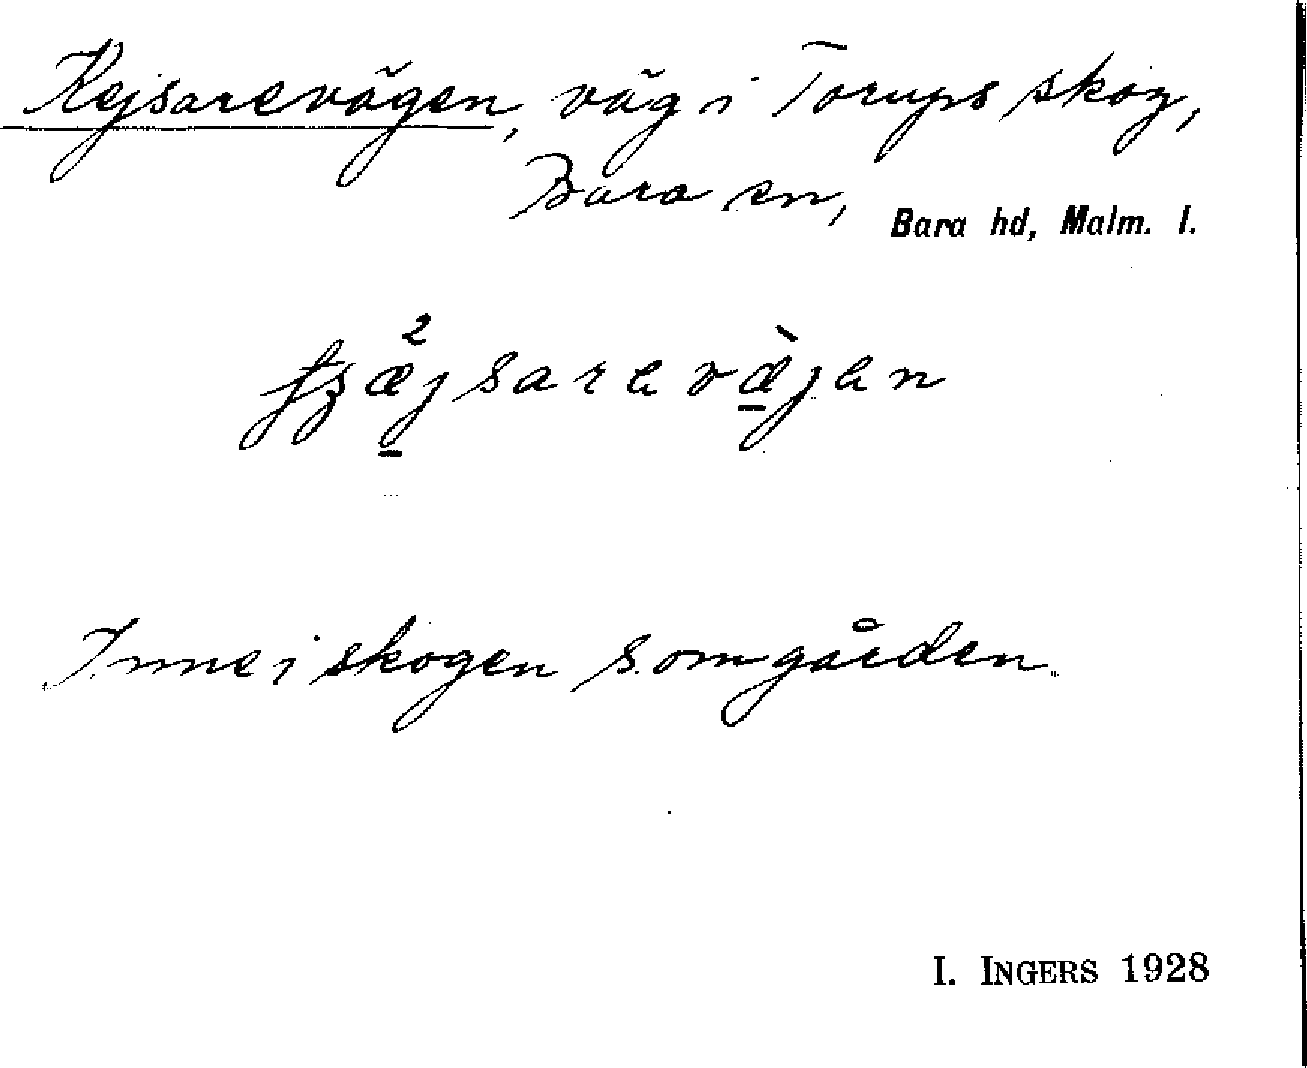 Kejsarevägen, väg i Torups skog,
Bara sn, Bara hd, Malm. l.
æ²jsarevæ̀jen
Inne i skogen S. om gården.
I. INGERS 1928